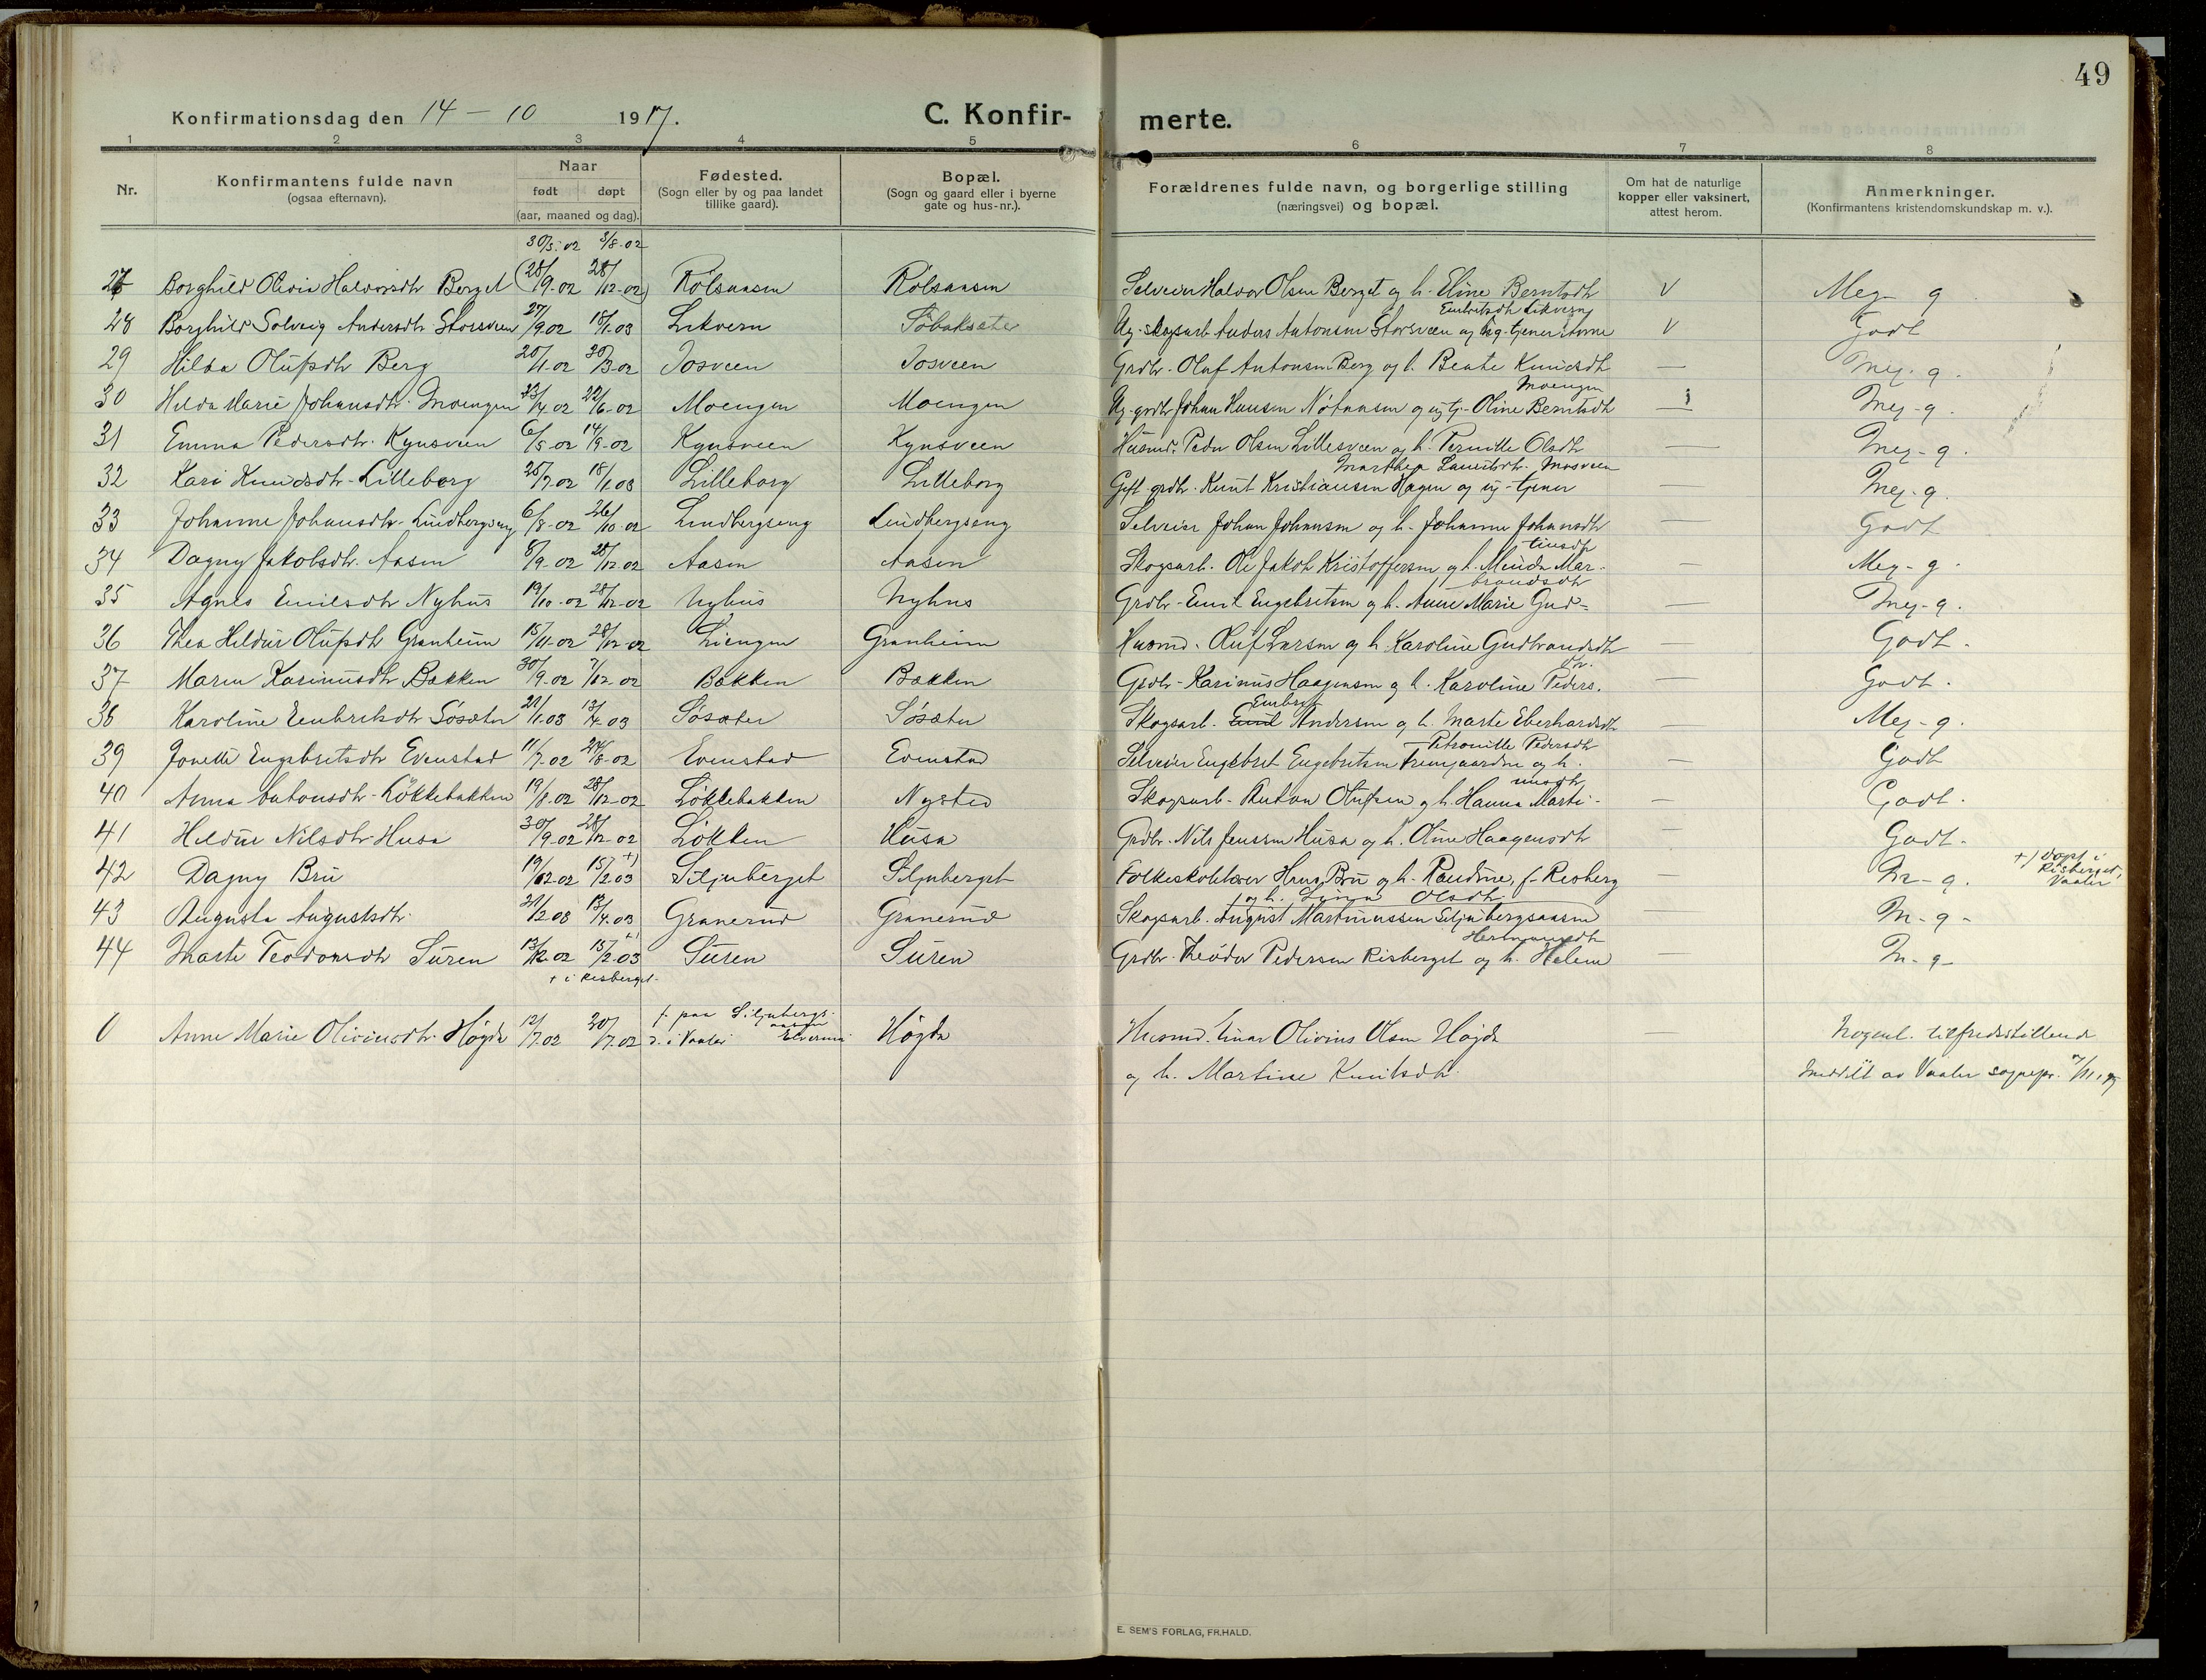 49
Konfirmationsdag den 14 - 10 1917.
C. Konfir-
merte.
1 2 3 4 5 6 7 8
Nr.
Konfirmantens fulde navn
(ogsaa efternavn).
Naar
født døpt
(aar, maaned og dag).
Fødested.
(Sogn eller by og paa landet
tillike gaard).
Bopæl.
(Sogn og gaard eller i byerne
gate og hus-nr.).
Forældrenes fulde navn, og borgerlige stilling
(næringsvei) og bopæl.
Om hat de naturlige
kopper eller vaksinert,
attest herom.
Anmerkninger.
(Konfirmantens kristendomskundskap m. v.).
30/5-02 3/8-02
27 Borghild Olivia Halvorsdtr Berget (28/9.02 28/12-02) Rølsaasen Rølsaasen Selveier Halvor Olsen Berget og h. Eline Berntsdtr V Meg- g
Embretsdtr Likvern
28 Borghild Solveig Andersdtr Storsveen 27/9.02 18/1.03 Likvern Søbaksæte Ug. skogsarb. Anders Antonsen Storsveen og ug. tjener V Godt
29 Hilda Olufsdtr Berg 20/1.02 30/3-02 Josveen Josveen Grdbr. Oluf Antonsen Berg og h. Beate Knudsdtr — Meg. g.
Moengen
30 Hilda Marie Johansdtr. Moengen 23/4.02 22/6-02 Moengen Moengen Ug. grdbr Johan Hansen og ug tj. Oline Berntsdtr — Meg-g.
31 Emma Pedersdtr. Kynsveen 6/5-02 14/9-02 Kynsveen Kynsveen Husmd. Peder Olsen Lillesveen og h. Pernille Olsdtr — Meg-g.
Marthea Mosveen
32 Kari Knudsdtr-Lilleborg 25/7.02 18/1.03 Lilleborg Lilleborg Gift grdbr. Knut Kristiansen Hagen og ug-tjener — Meg-g.
33 Johanne Johansdtr-Lindbergseng 6/8-02 26/10-02 Lindbergseng Lindbergseng Selveier Johan Johansen og h. Johanne Johansdtr — Godt
tinsdtr
34 Dagny Jakobsdtr. Aasen 8/9-02 28/12.02 Aasen Aasen Skogsarb. Ole Jakob Kristoffersen og h. Mar- — Meg-g.
brandsdtr
35 Agnes Emilsdtr Nyhus 19/10-02 28/12-02 Nyhus Nyhus Grdbr-Emil Engebretsen og h. Anne Marie Gud= — Meg-g.
36 Thea Hildur Olufsdtr Granheim 15/11-02 28/12-02 Liengen Granheim Husmd. Oluf Larsen og h. Karoline Gudbrandsdtr — Godt.
dtr.
37 Maren Karinusdtr Bakken 30/9.02 7/12-02 Bakken Bakken Grdbr-Karinus Haagensen og h. Karoline Peders. — Godt.
Embret
38 Karoline Embretsdtr Søsæter 21/1.03 13/4-03 Søsæter Søsæter Skogsarb. Emil Andersen og h. Marte Eberhardsdtr — Meg-g.
Petronille Pedersdtr
39 Jonette Engebretsdtr Evenstad 11/7.02 24/8-02 Evenstad Evenstad Selveier Engebret Engebretsen og h. — Godt
nusdtr
40 Anna Antonsdtr-Løkkebakken 19/8.02 28/12-02 Løkkebakken Nysted Skogsarb. Anton Olufsen og h. Hanna Marti- — Godt.
41 Hildur Nilsdtr Husa 30/9-02 28/12-02 Løkken Husa Grdbr. Nils Jenssen Husa og h. Oline Haagensdtr — Godt.
42 Dagny Bru 19/12-02 15/2.03 +) Siljuberget Siljuberget Folkeskolelærer Hans Bru og h. Randine, f. Risberg — M-g. +) døpt i
Risberget,
Vaaler
og h. Lina Olsdtr
43 Augusta Augustsdtr. 21/2 03 13/4.03 Granerud Granerud Skogsarb. August Martinussen Siljubergsaasen — M-g-
Hermansdtr
44 Marte Teodorsdtr Suren 13/12.02 15/2.03 +) Suren Suren Grdbr. Theodor Pedersen Risberget og h. Helene — M-g-
+ i Risberget.
0 Anne Marie Oliviusdtr. Høgda 12/7.02 20/7.02 f. paa Siljubergs-
aasen
d. i Vaaler Elverum Høgda Husmd. Einar Olivius Olsen Høgda — Nogenl. tilfredsstillende
og h. Martine Knutsdtr. Meddelt av Vaaler sognepr.
E. SEM'S FORLAG, FR.HALD.